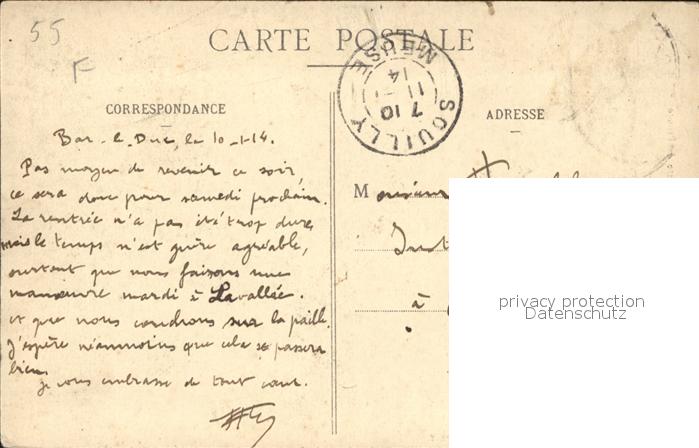 55
F
CARTE POSTALE
SOUILLY
MEUSE
7 10
11 - 1
14
CORRESPONDANCE
ADRESSE
Bar-le-Duc, le 10-1-14.
Pas moyen de revenir ce soir,
ce sera donc pour samedi prochain.
La rentrée n'a pas été trop dure
mais le temps n'est guère agréable,
surtout que nous faisons une
manœuvre mardi à Lavallée.
et que nous coucherons sur la paille.
J'espère néanmoins que cela se passera
bien.
je vous embrasse de tout cœur.
Monsieur
Inst
à
privacy protection
Datenschutz